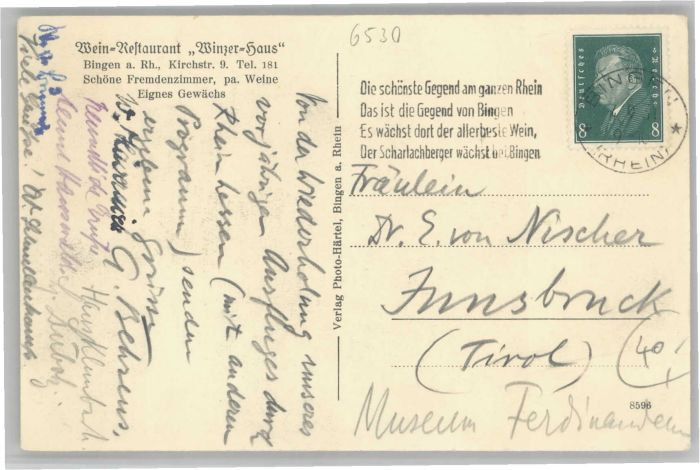 6530
Wein-Restaurant „Winzer-Haus“
Bingen a. Rh., Kirchstr. 9. Tel. 181
Schöne Fremdenzimmer, pa. Weine
Eignes Gewächs
Von der Wiederholung unseres
vorjährigen Ausfluges durch
Rheinhessen (mit anderem
Programm) senden
ergebene Grüsse
G. Behrens,
Herzliche Grüße
Viele Grüße!
Verlag Photo-Härtel, Bingen a. Rhein
Die schönste Gegend am ganzen Rhein
Das ist die Gegend von Bingen
Es wächst dort der allerbeste Wein,
Der Scharlachberger wächst bei Bingen
Deutsches Reich
8 8
BINGEN
(RHEIN)
Fräulein
Dr. E. von Nischer
Innsbruck
(Tirol)
(40)
8596
Museum Ferdinandeum